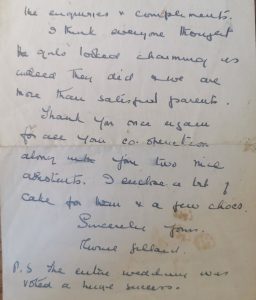 the enquiries & compliments.
I think everyone thought
the girls looked charming as
indeed they did & we are
more than satisfied parents.
Thank you once again
for all your co-operation
along with your two nice
assistants. I enclose a bit of
cake for them & a few chocs.
Sincerely yours.
P.S The entire wedding was
voted a huge success.